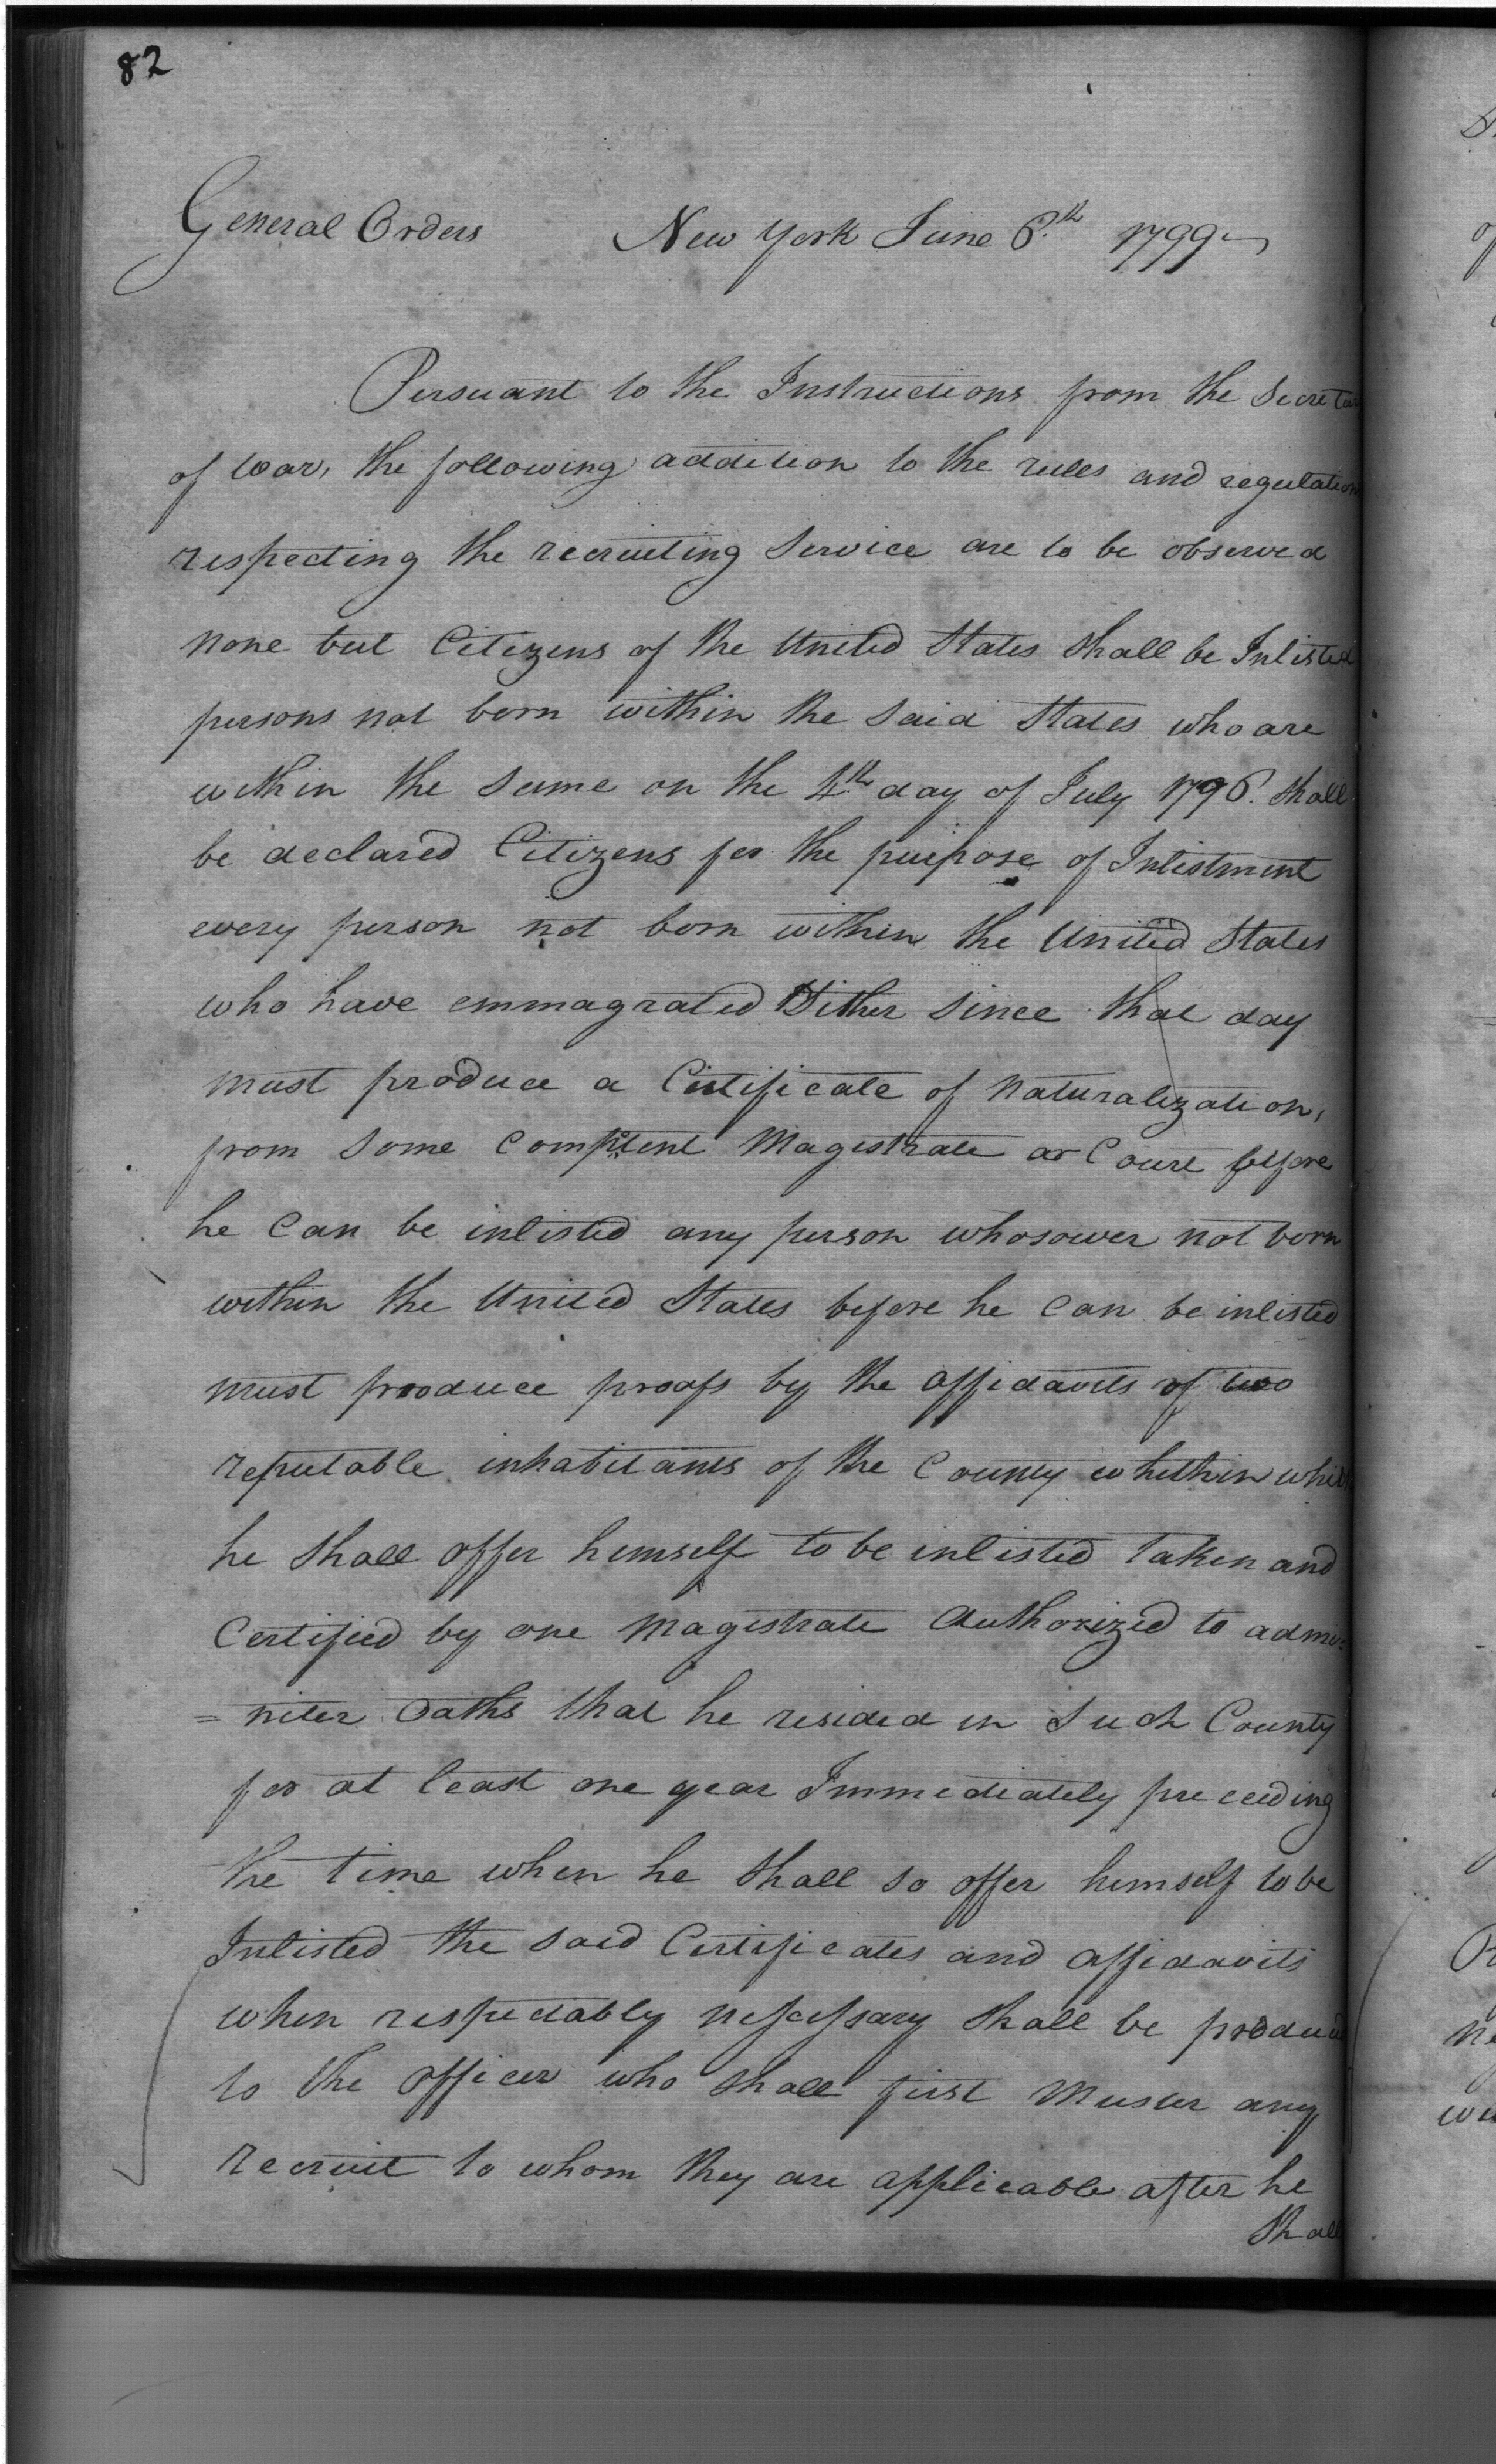 82
General Orders New York June 6.th 1799
Persuant to the Instructions from the Secretar
of War, the following addition to the rules and regulations
respecting the recruiting Service are to be observed
none but Citizens of the United States shall be Inlisted
persons not born within the Said States who are
within the Same on the 4th day of July 1796. shall
be declared Citizens for the purpose of Inlistment
every person not born within the United States
who have emmagrated Hither Since that day
must produce a Certificate of Naturalization,
from Some Competent Magistrate or Court before
he Can be inlisted any person whosower not born
within the United States before he Can be inlisted
must prooduce proofs by the affidavits of two
reputable inhabitants of the County whethin which
he Shall offer himself to be inlisted taken and
Certified by one Magistrate Authorized to admi=
=niter Oaths that he resided in Such County
for at least one year Immediately preceeding
the time when he Shall So offer himself to be
Inlisted the said Certificates and affidavits
when respectably nessessary Shall be produced
to the officer who Shall first Muster any
recruit to whom they are applicable after he
Shall